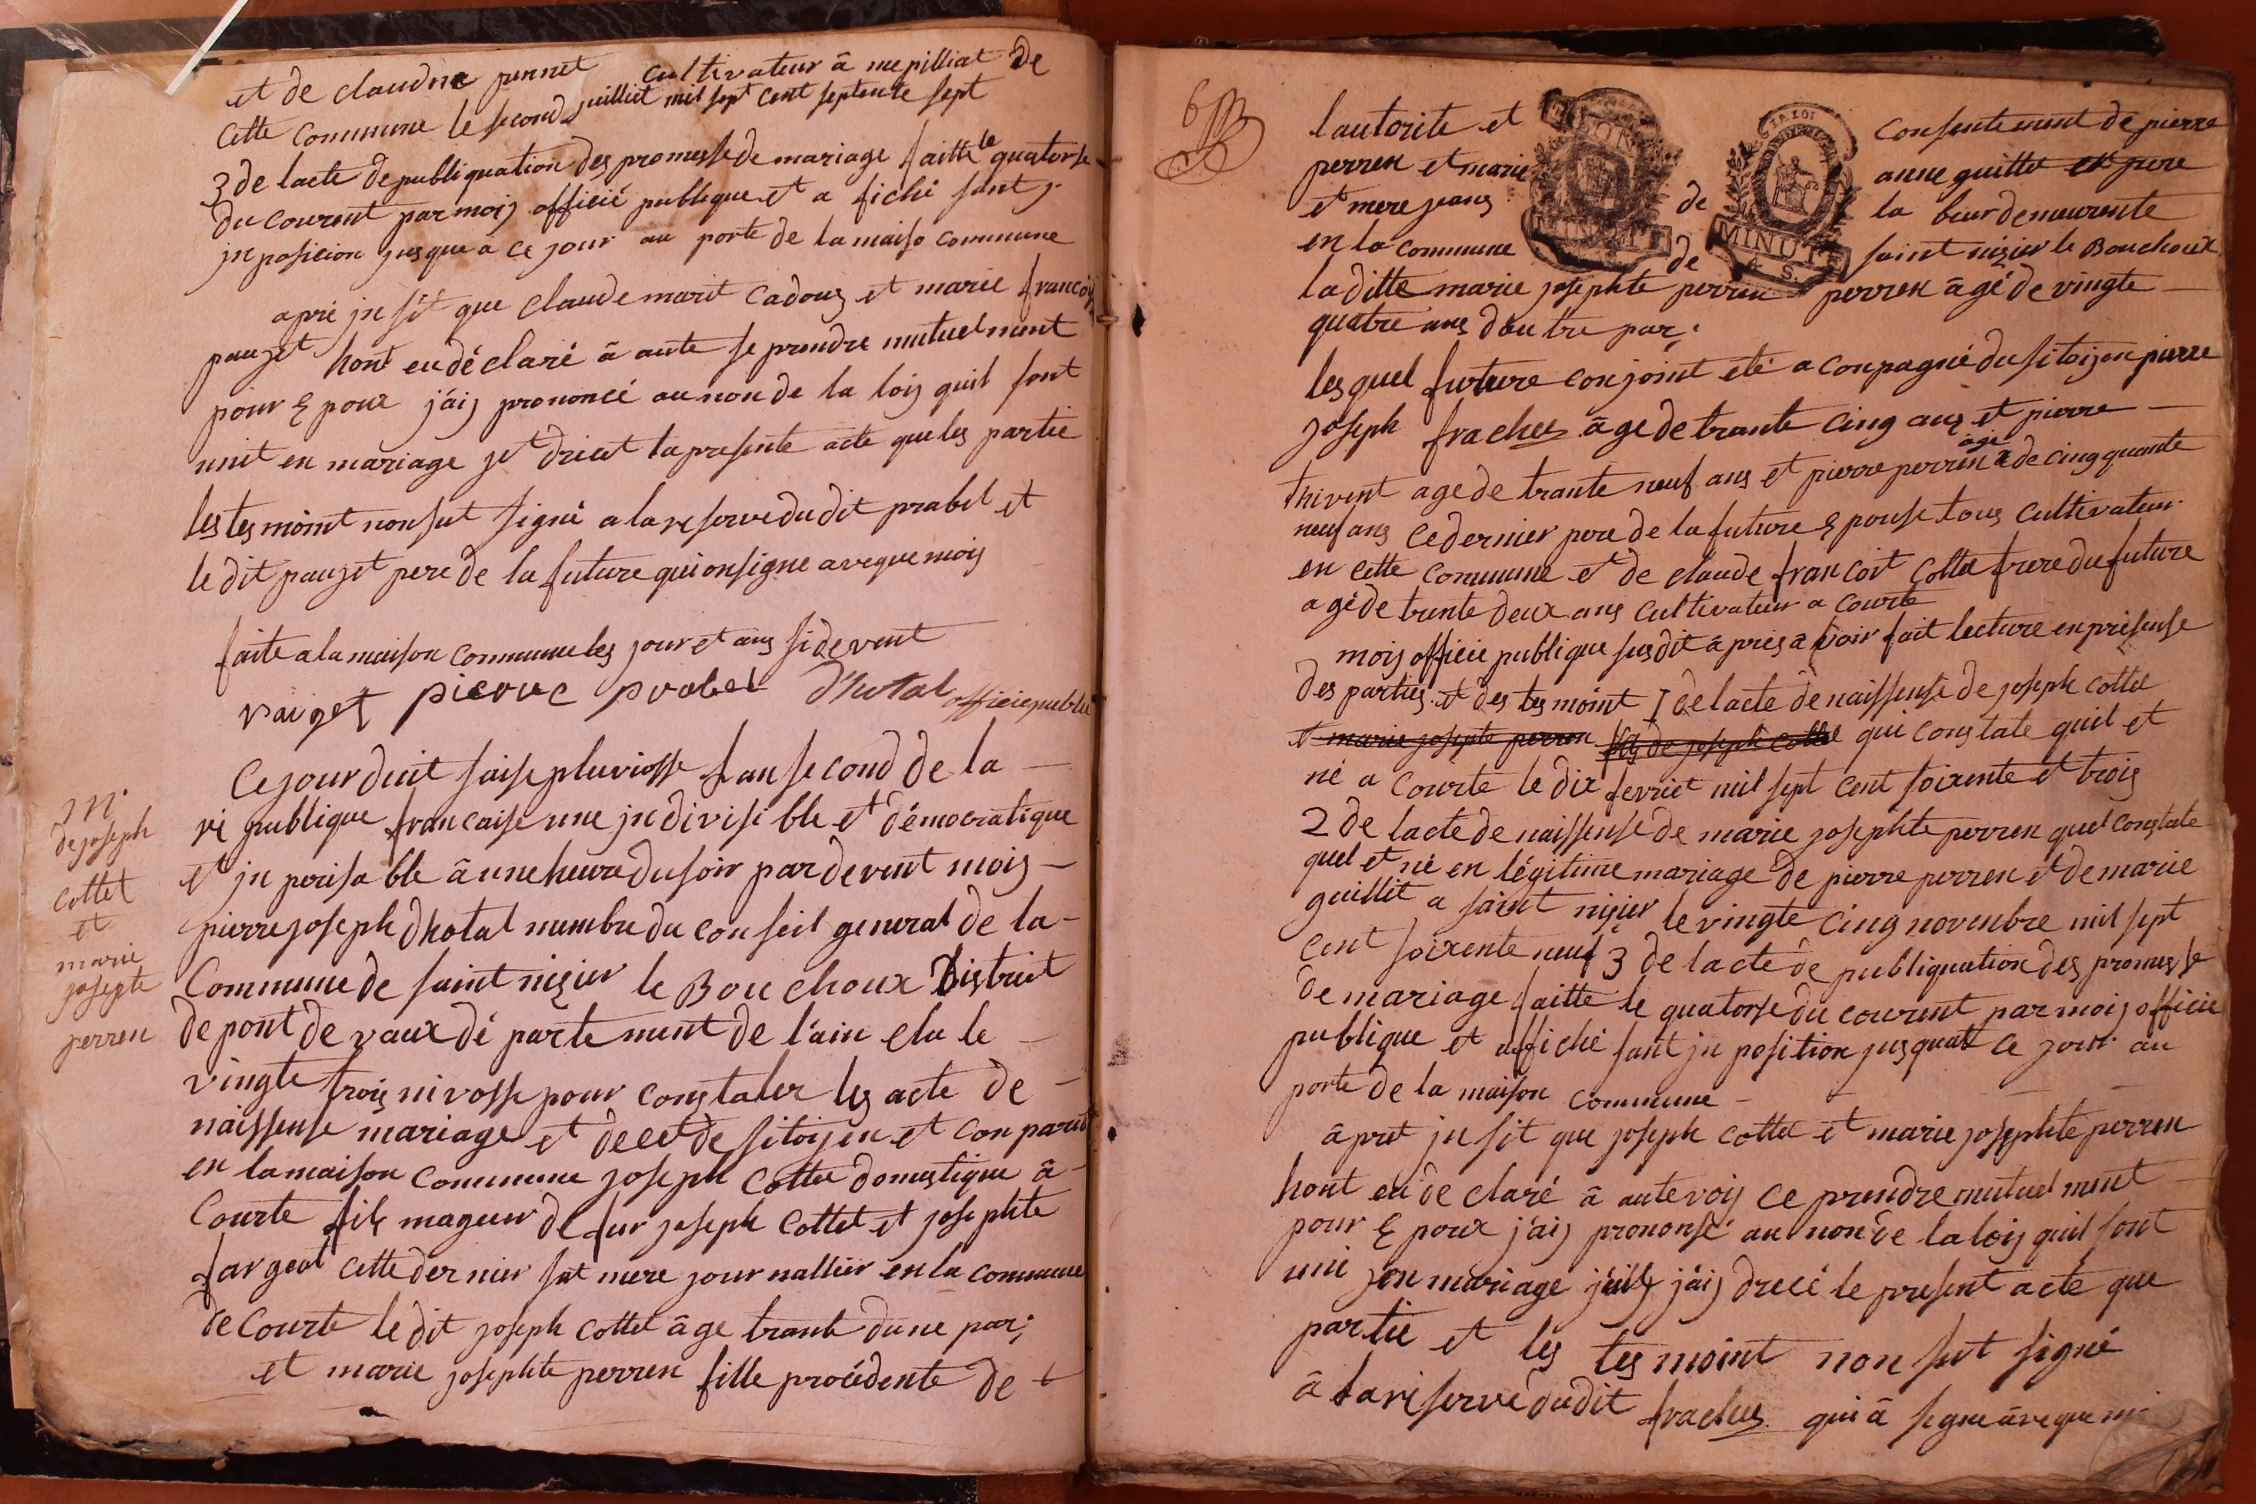 et de claudine pernet cultivateur â mepilliat de
cette commune le second juilliet mil sept cent septente sept
3 de lacte de publiquation des promesse de mariage faitte le quatorse
du courent par moij officié publique et a fiché sant j
jn posicion jusque a ce jour au porte de la maiso commune
apré jn sit que claude marit cadous et marie francois
pauget hont eu déclaré â aute se prendre mutuelment
pour Epoux j'aij prononcé au non de la loij quil sont
unit en mariage jet driet la presente acte que les partie
les tesmoint non sut signé a la reserve du dit prabel et
le dit pauget pere de la future qui on signe aveque moij
faite a la maison commune les jour et ans si devent
Pauget pierre prabel D'hotal officié publie
Ce jour duit saise pluviosse lan second de la
république francaise une jndivisible et démocratique
et jn perisable â une heure du soir par devent moij
pierre joseph dhotal membre du conseil general de la
Commune de saint nizier le Bouchoux District
de pont de vaux département de l'ain elu le
vingte trois nivosse pour constater les acte de
naissense mariage et decet de sitoijen et con parut
en la maison commune joseph Cottet domestique â
Courte fils mageur de fur joseph Cottet et josephte
fargeat cette dernier sat mere journallier en la commune
de Courte le dit joseph cottet âge trante dune par;
et marie josephte perren fille procédente de
M.
de joseph
cottet
et
marie
josepte
perren
6
lautorite et consentement de pierre
perren et marie anne guittet et pere
et mere jeans de la beur demeurente
en la commune de saint nizier le Bouchoux
MINUTE
la ditte marie josephte perren perren âgé de vingte
quatre ans dautre par;
les quel future conjoint été a conpagné du sitoijen pierre
joseph frachet âge de trante cinq ans et pierre
thivent age de trante neuf ans et pierre perren âgé de cinq quante
neuf ans ce dernier pere de la future Epouse tous cultivateur
en cette commune et de claude francoit Cottet frere du future
agé de trente deux ans cultivateur a courte
moij officié publique susdit âprés a voir fait lecture en présense
des parties et des tesmoint I de lacte de naissense de joseph cottet
et marie josepte perren fils de joseph cottet qui constate quil et
né a Courte le dix fevriet mil sept cent soixente et trois
2 de lacte de naissense de marie josephte perren quel constate
quel et né en légitime mariage de pierre perren et de marie
guillit a saint nizier le vingte cinq novenbre mil sept
cent soixente neuf 3 de lacte de publiquation des promesse
de mariage faitte le quatorse du courent par moij officié
publique et affiché sant jn position jusquat ce jour au
porte de la maison commune
âpret jn sit que joseph cottet et marie josephte perren
hont eu de claré â aute voij ce prendre mutuelment
pour Epoux j'aij prononsé au non de la loij quil sont
unie jen mariage jaij j'aij drecé le present acte que
partie et les tesmoint non sut signé
â la réserve du dit frachet qui â signe âveque